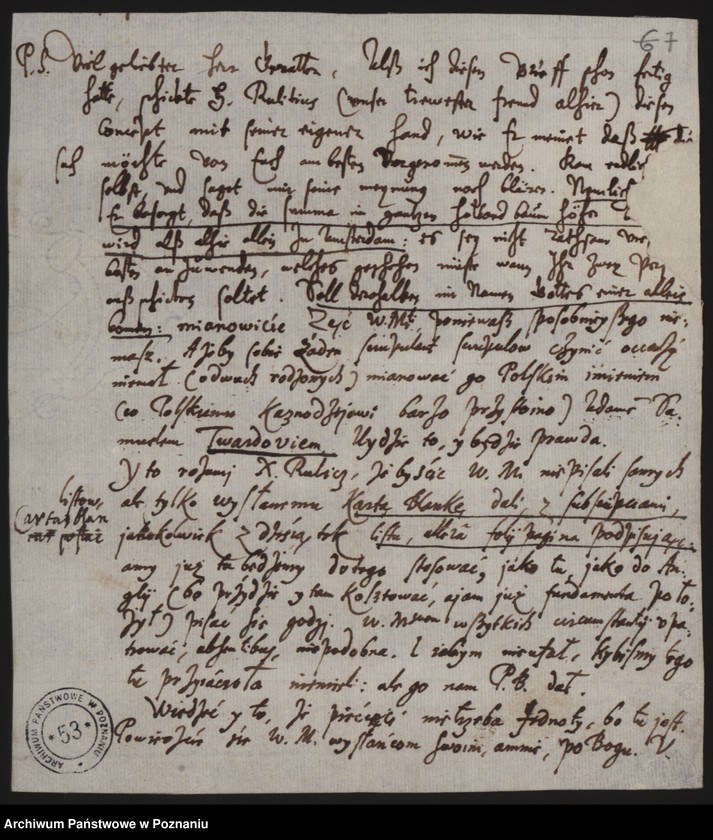 67
P.S. Viel geliebter Herr Gevatter, Alß ich diesen Brieff schon fertig
hatte, schickte H. Rulitius (unser trewester freund alhier) diesen
Concept mit seiner eigener hand, wie Er meinet daß die
sach möchte von Euch am besten vorgenommen werden. Kam endlich
selbst, und saget mir seine meynung noch klärer. Nemlich
Er besorget, daß die summa in gantzen Holland kaum höher
wird alß alhie allein zu Amsterdam: es sey nicht rathsam
kosten an zu wenden, welches geschehen müste wann Ihr zwey
außschicken soltet. Soll derohalben im Namen Gottes einer allein
kommen: mianowicie Zęć W.Mći, poniewaß sposobnieyszego nie-
masz. A żeby sobie żaden skrupulow czynić occasij
niemał (odwach rodzonych) mianować go Polskim imieniem
(co Polskiemu Kaznodziejowi barzo przystoino) Adamē Sa-
muelem Twardoviem. Uydzie to, y będzie prawda.
Y to rozumij X. Rulicz, żebyście W. M. nie pisali samych
listow, ale tylko wysłanemu Kartę Blankę dali, z subscripciami,
Carta blan
jakokolwiek z dziesiątek listu, allzā folij pagina podpisując.
amy już tu będziemy do tego stosować, jako tu, jako do An-
glij (bo przydzie y tam kosztować, a jam już fundamenta poło-
żył) pisać się godzi. W. Mściom wszytkich circumstantij upa-
trować, absentibus, niepodobna. I tobym nieuział, kybismy tego
tu przyiaciela niemieli: ale go nam P. B. dał.
Wiedzieć y to, że pieczęci nie trzeba Jednoty, bo tu jest.
Powierzcie się W. M. wysłańcom swoim, a mnie, po Bogu. V.
ARCHIWUM PAŃSTWOWE W POZNANIU
*53*
Archiwum Państwowe w Poznaniu